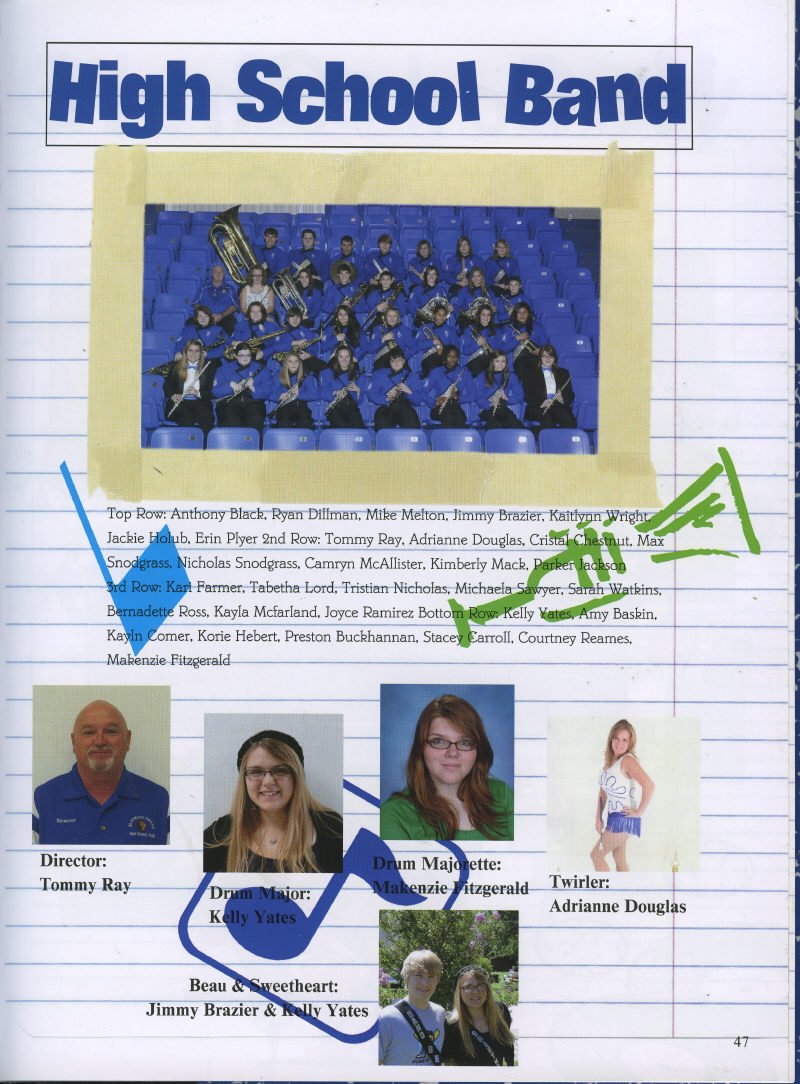 High School Band
Top Row: Anthony Black, Ryan Dillman, Mike Melton, Jimmy Brazier, Kaitlynn Wright,
Jackie Holub, Erin Plyer 2nd Row: Tommy Ray, Adrianne Douglas, Cristal Chestnut, Max
Snodgrass, Nicholas Snodgrass, Camryn McAllister, Kimberly Mack, Parker Jackson
3rd Row: Karl Farmer, Tabetha Lord, Tristian Nicholas, Michaela Sawyer, Sarah Watkins,
Bernadette Ross, Kayla Mcfarland, Joyce Ramirez Bottom Row: Kelly Yates, Amy Baskin,
Kayln Comer, Korie Hebert, Preston Buckhannan, Stacey Carroll, Courtney Reames,
Makenzie Fitzgerald
Director
Director:
Tommy Ray
Drum Major:
Kelly Yates
Drum Majorette:
Makenzie Fitzgerald
Twirler:
Adrianne Douglas
Beau & Sweetheart:
Jimmy Brazier & Kelly Yates
47